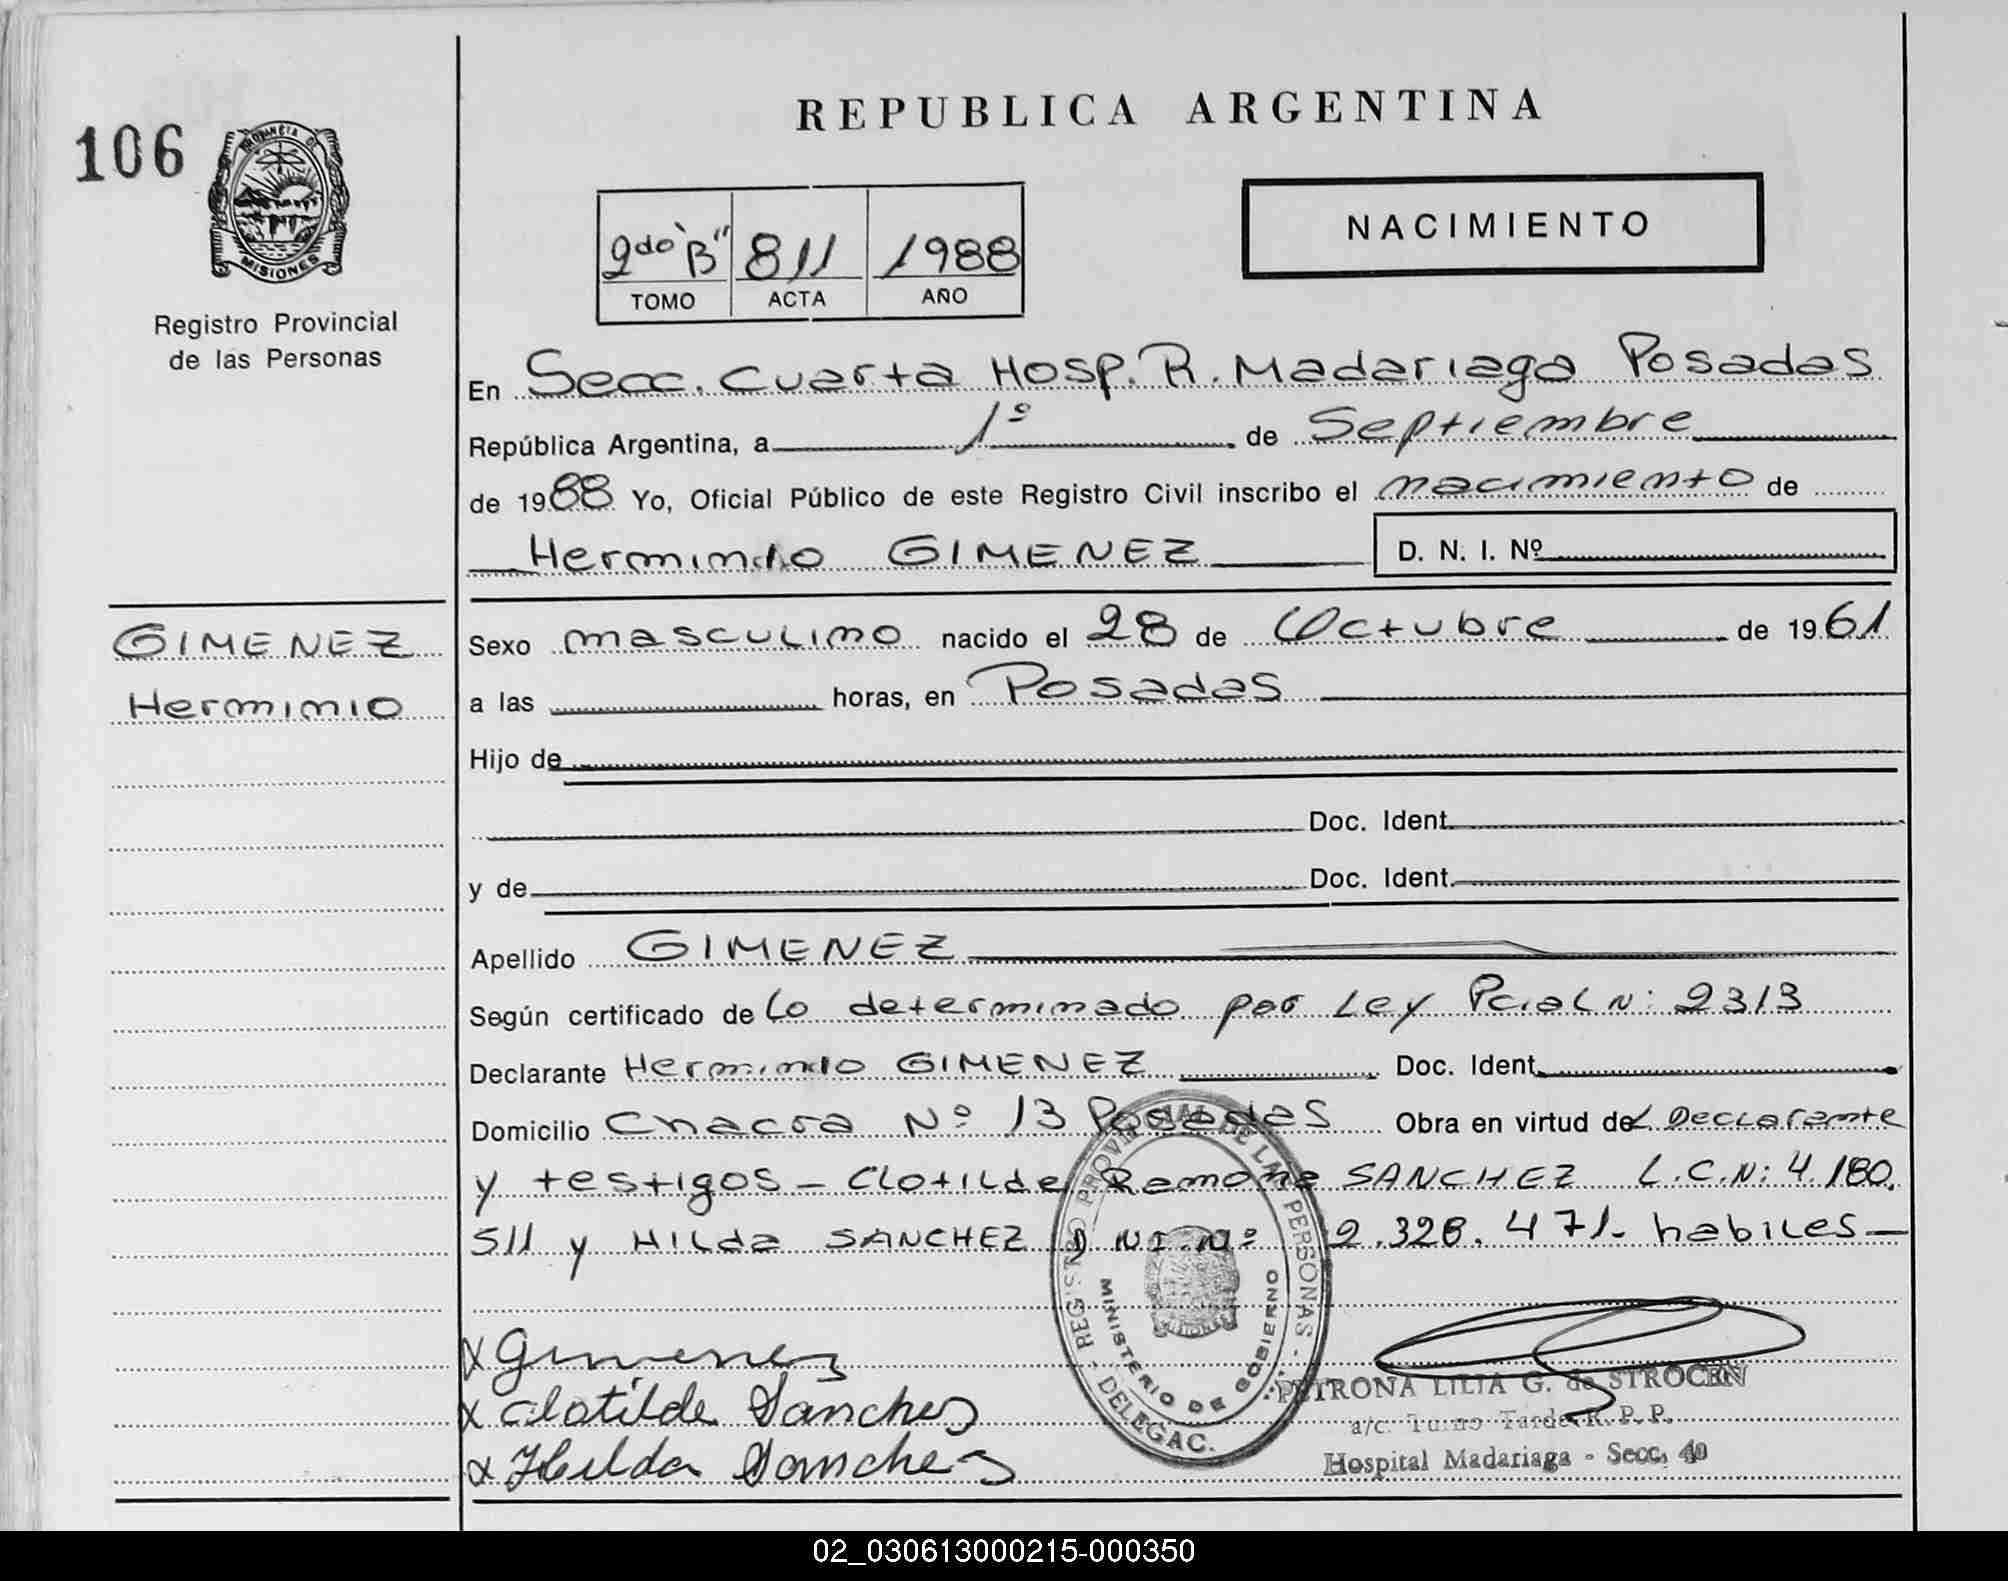 REPUBLICA ARGENTINA
106
PROVINCIA DE
MISIONES
Registro Provincial
de las Personas
NACIMIENTO
2do "B" 811 1988
TOMO ACTA AÑO
En Secc. Cuarta Hosp. R. Madariaga Posadas
República Argentina, a 1º de Septiembre
de 1988 Yo, Oficial Público de este Registro Civil inscribo el nacimiento de
Herminio GIMENEZ D. N. I. Nº
GIMENEZ
Herminio
Sexo masculino nacido el 28 de Octubre de 1961
a las horas, en Posadas
Hijo de
Doc. Ident.
y de Doc. Ident.
Apellido GIMENEZ
Según certificado de lo determinado por Ley Pcial N: 2313
Declarante Herminio GIMENEZ Doc. Ident.
Domicilio Chacra Nº 13 Posadas Obra en virtud del Declarante
y testigos - Clotilde Ramona SANCHEZ L.C.N: 4.180.
511 y HILda SANCHEZ D NI. Nº 2.328.471- habiles-
REGISTRO PROVINCIAL DE LAS PERSONAS - DELEGAC.
MINISTERIO DE GOBIERNO
x Gimenez
x Clotilde Sanchez
x Hilda Sanchez
PETRONA LILIA G. de STROCEN
a/c. Turno Tarde R. P. P.
Hospital Madariaga - Secc. 4a
02_030613000215-000350